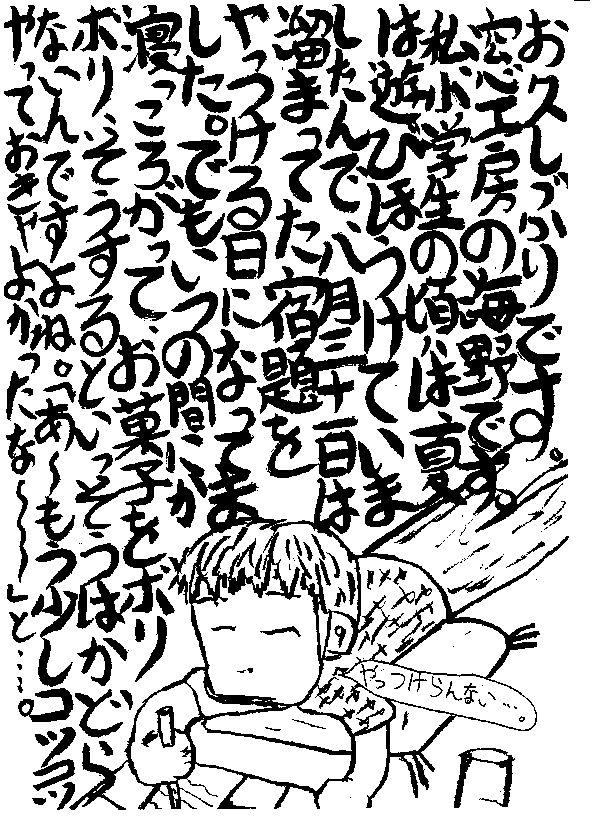 お久しぶりです。
窓心工房の海野です。
私小学生の頃は、夏
は遊びほうけていま
したんで、八月三十一日は
溜まってた宿題を
やっつける日になってま
した。でも、いつの間にか
寝っころがって、お菓子をボリ
ボリ、そうするといっそうはかどら
ないんですよね。「あ〜もう少しコツコツ
やっておきゃよかったな〜〜〜」と…。
やっつけらんない…。